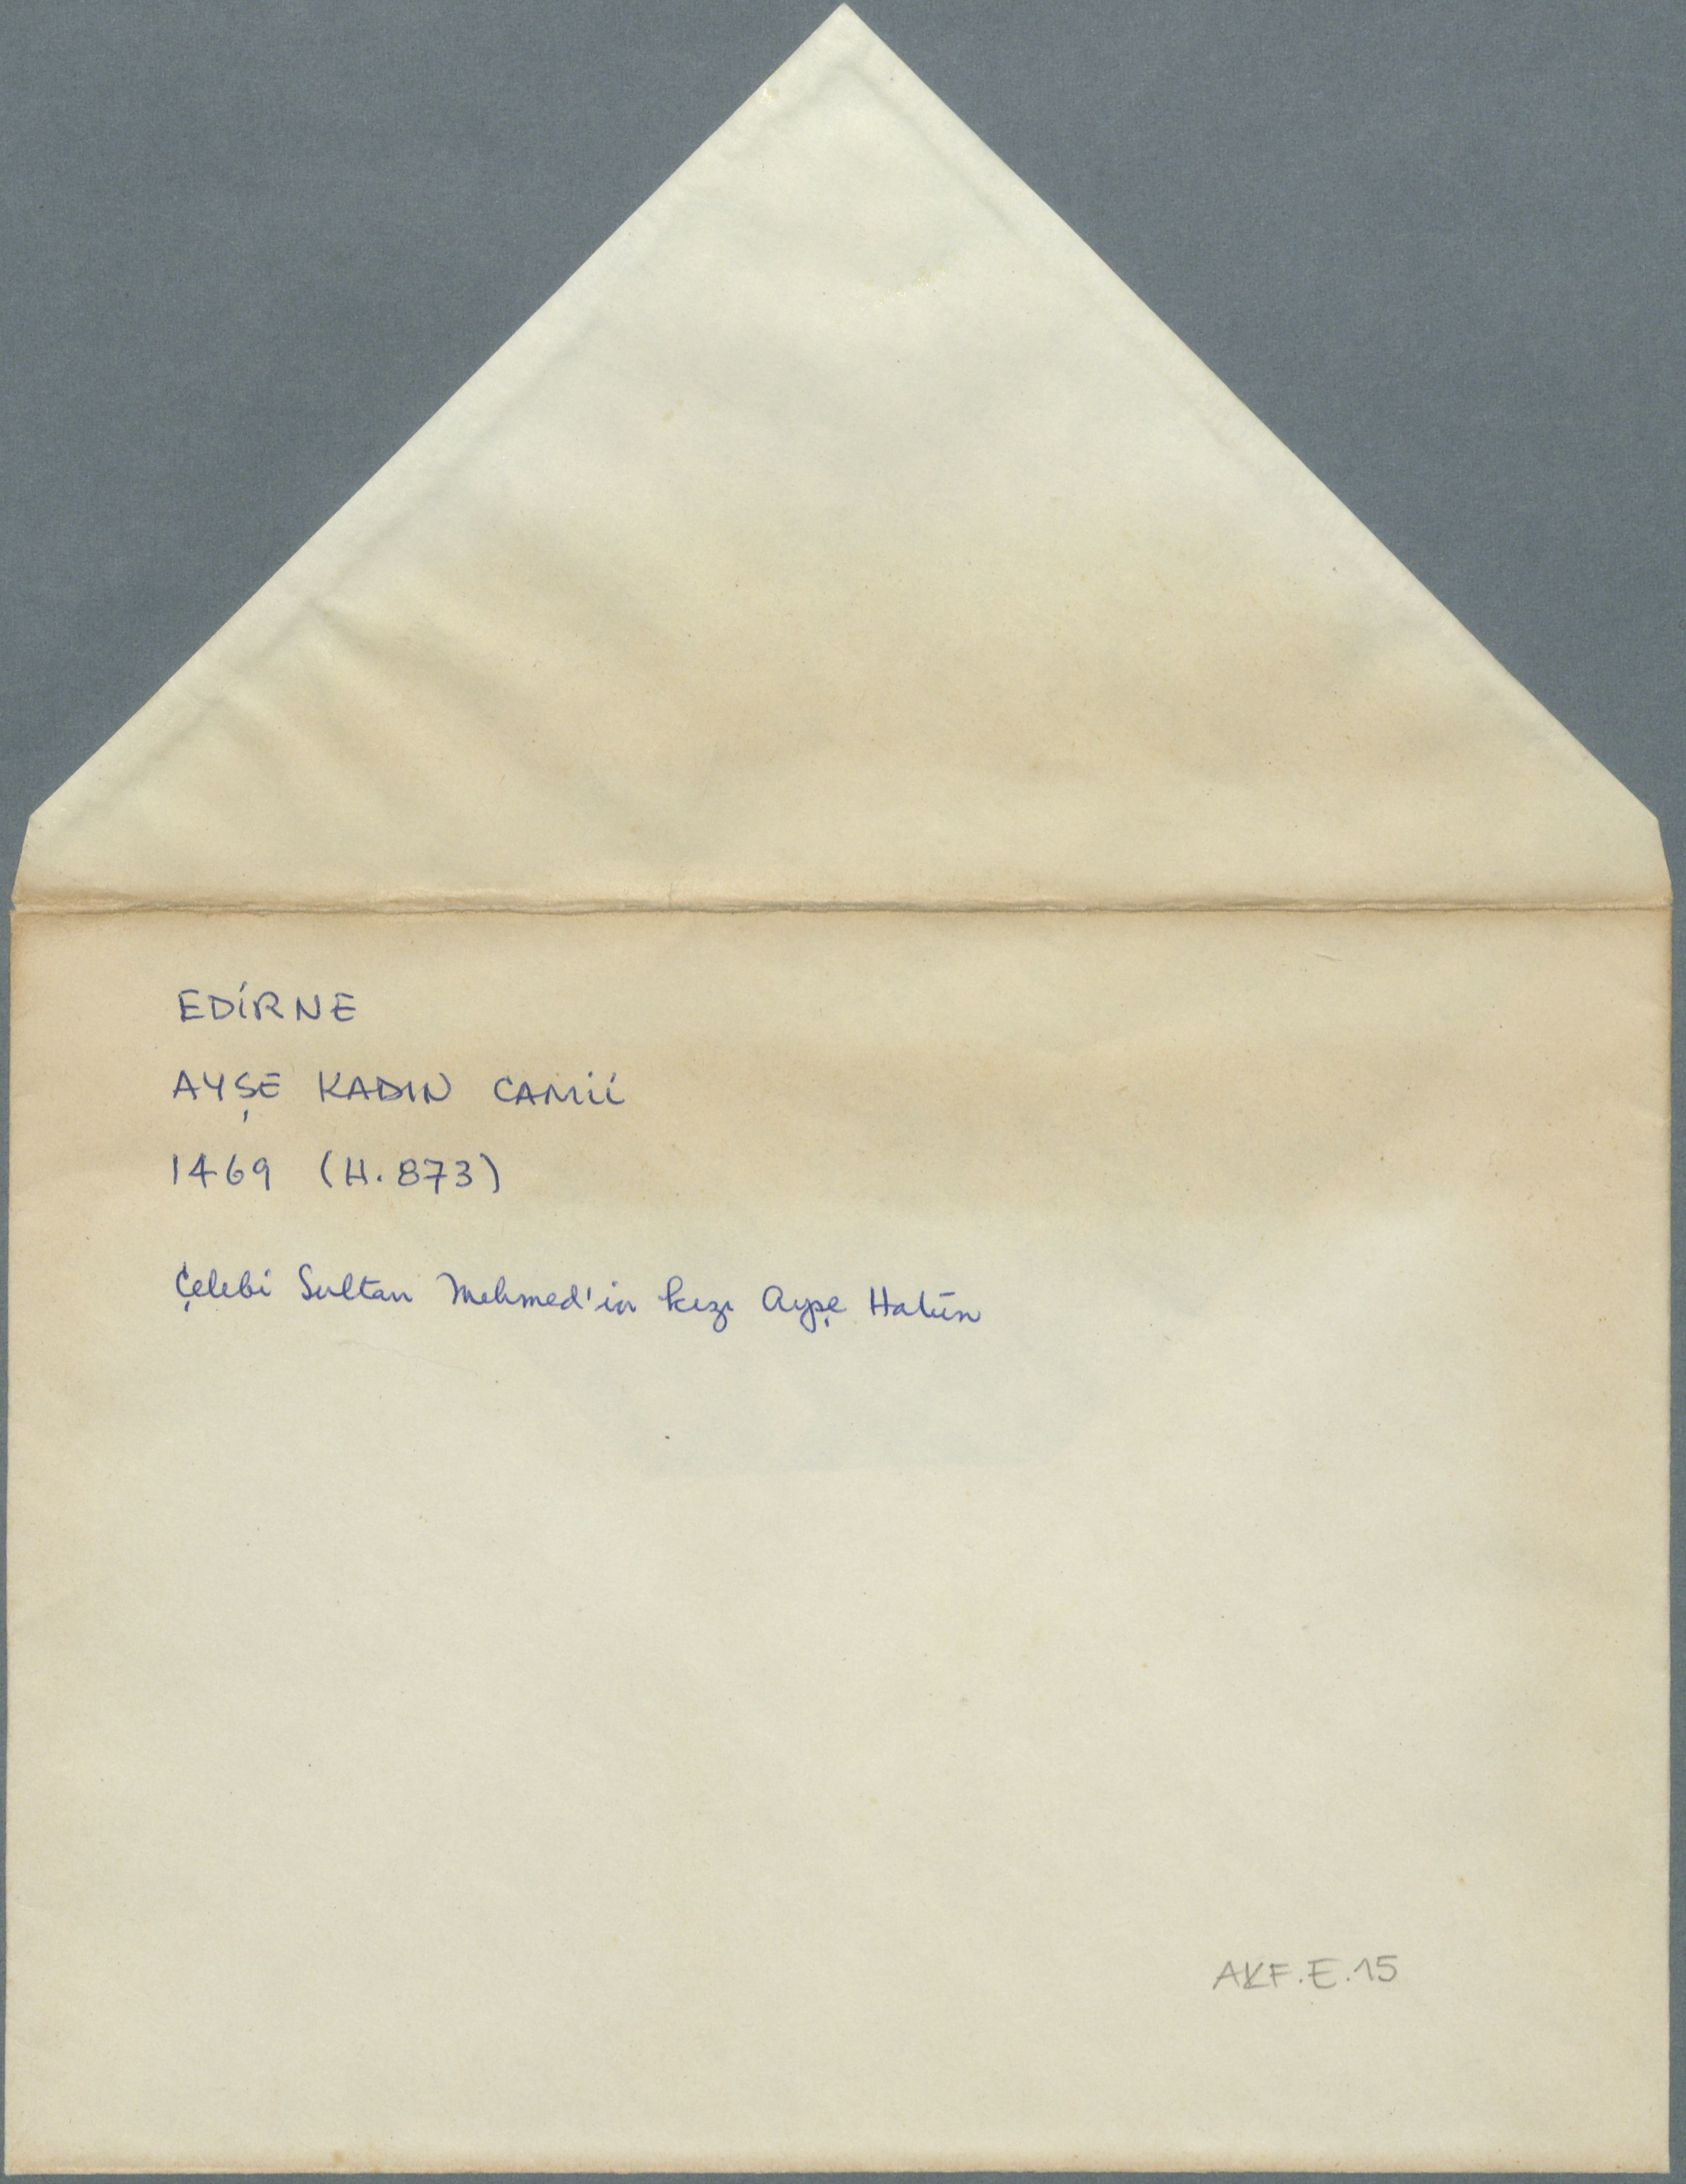 EDİRNE
AYŞE KADIN CAMİİ
1469 (H.873)
Çelebi Sultan Mehmed'in kızı Ayşe Hatûn
AKF.E.15